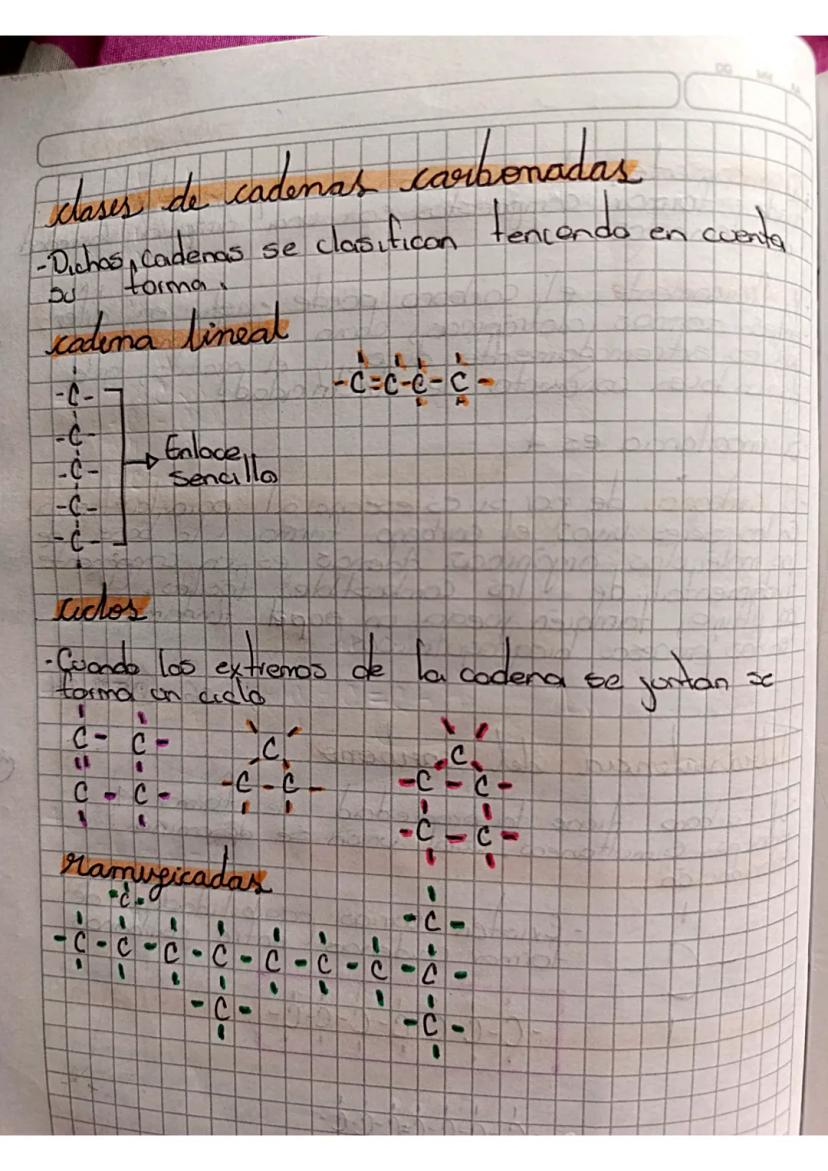 DD MM AA
clases de cadenas carbonadas
-Dichas cadenas se clasifican tencendo en cuenta
su forma.
cadena lineal
-C- -C=C-C-C-
-C-
-C- Enlace
-C- sencillo
-C-
ciclos
-Cuando los extremos de la cadena se juntan se
forma un ciclo
C- C- C C
C - C- -C-C- -C-C-
-C-C-
ramificadas
-C- -C-
-C-C-C-C-C-C-C-C-
-C- -C-